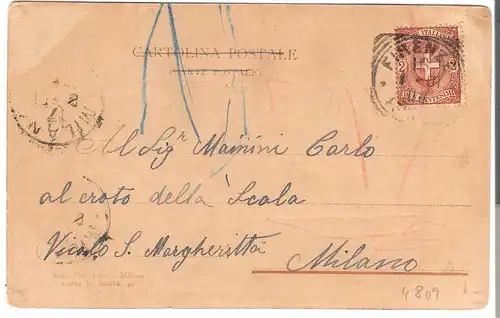 CARTOLINA POSTALE
(CARTE POSTALE)
2 2
FIRENZE
MILANO
Al Sigr Mainini Carlo
al croto della Scala
Vicolo S. Margheritta
Milano
4809